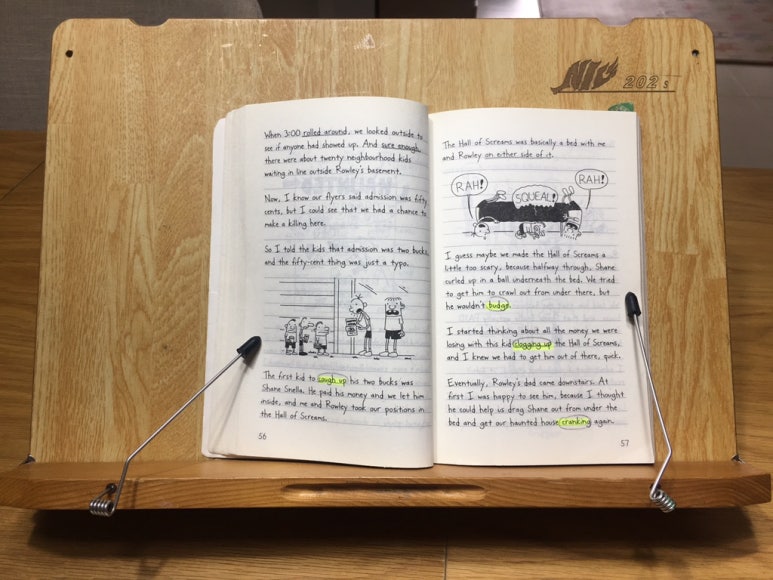 NIO 202 s
When 3:00 rolled around, we looked outside to
see if anyone had showed up. And sure enough,
there were about twenty neighbourhood kids
waiting in line outside Rowley's basement.
Now, I know our flyers said admission was fifty
cents, but I could see that we had a chance to
make a killing here.
So I told the kids that admission was two bucks,
and the fifty-cent thing was just a typo.
The first kid to cough up his two bucks was
Shane Snella. He paid his money and we let him
inside, and me and Rowley took our positions in
the Hall of Screams.
56
The Hall of Screams was basically a bed with me
and Rowley on either side of it.
RAH!
SQUEAL!
RAH!
I guess maybe we made the Hall of Screams a
little too scary, because halfway through, Shane
curled up in a ball underneath the bed. We tried
to get him to crawl out from under there, but
he wouldn't budge.
I started thinking about all the money we were
losing with this kid clogging up the Hall of Screams,
and I knew we had to get him out of there, quick.
Eventually, Rowley's dad came downstairs. At
first I was happy to see him, because I thought
he could help us drag Shane out from under the
bed and get our haunted house cranking again.
57